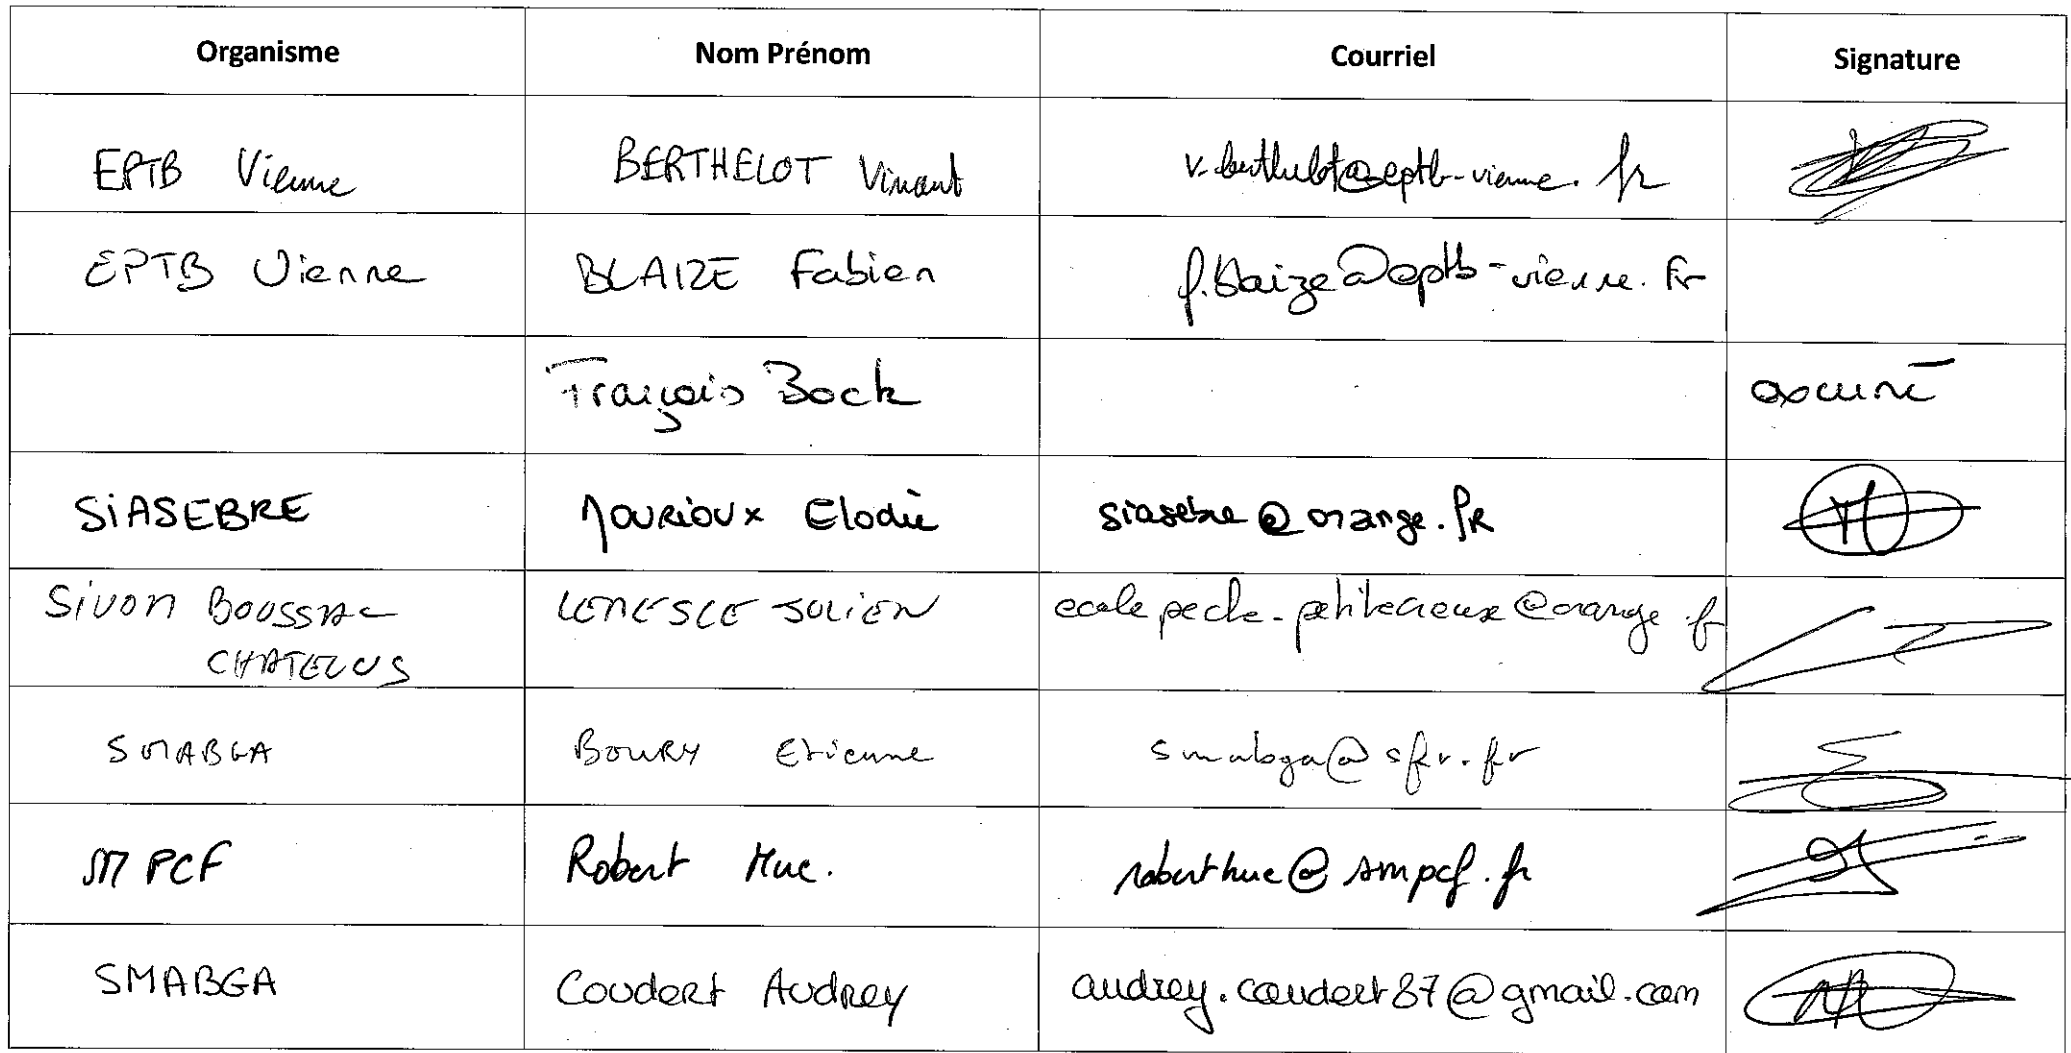 Organisme Nom Prénom Courriel Signature
EPTB Vienne BERTHELOT Vincent v.berthelot@eptb-vienne.fr
EPTB Vienne BLAIZE Fabien f.blaize@eptb-vienne.fr
François Bock excusé
SIASEBRE JOURIOUX Elodie siasebre@orange.fr
SIVOM BOUSSAC LENESLE JULIEN ecole.peche-petitecreuse@orange.fr
CHATELUS
SMABGA BOURY Etienne smabga@sfr.fr
SMPCF Robert Hue. roberthue@smpcf.fr
SMABGA Coudert Audrey audrey.coudert87@gmail.com